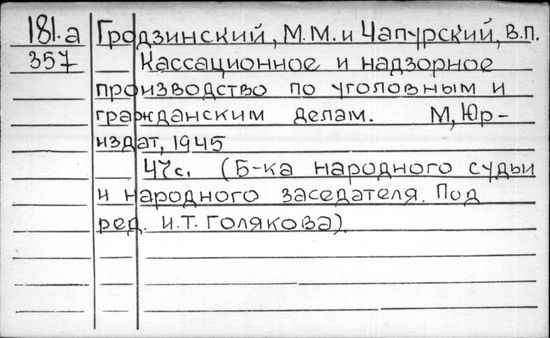 181.а Гродзинский, М.М. и Чапурский, В.П.
357 Кассационное и надзорное
производство по уголовным и
гражданским делам. М, Юр-
издат, 1945
47с. (Б-ка народного судьи
и народного заседателя. Под
ред. И.Т. Голякова)